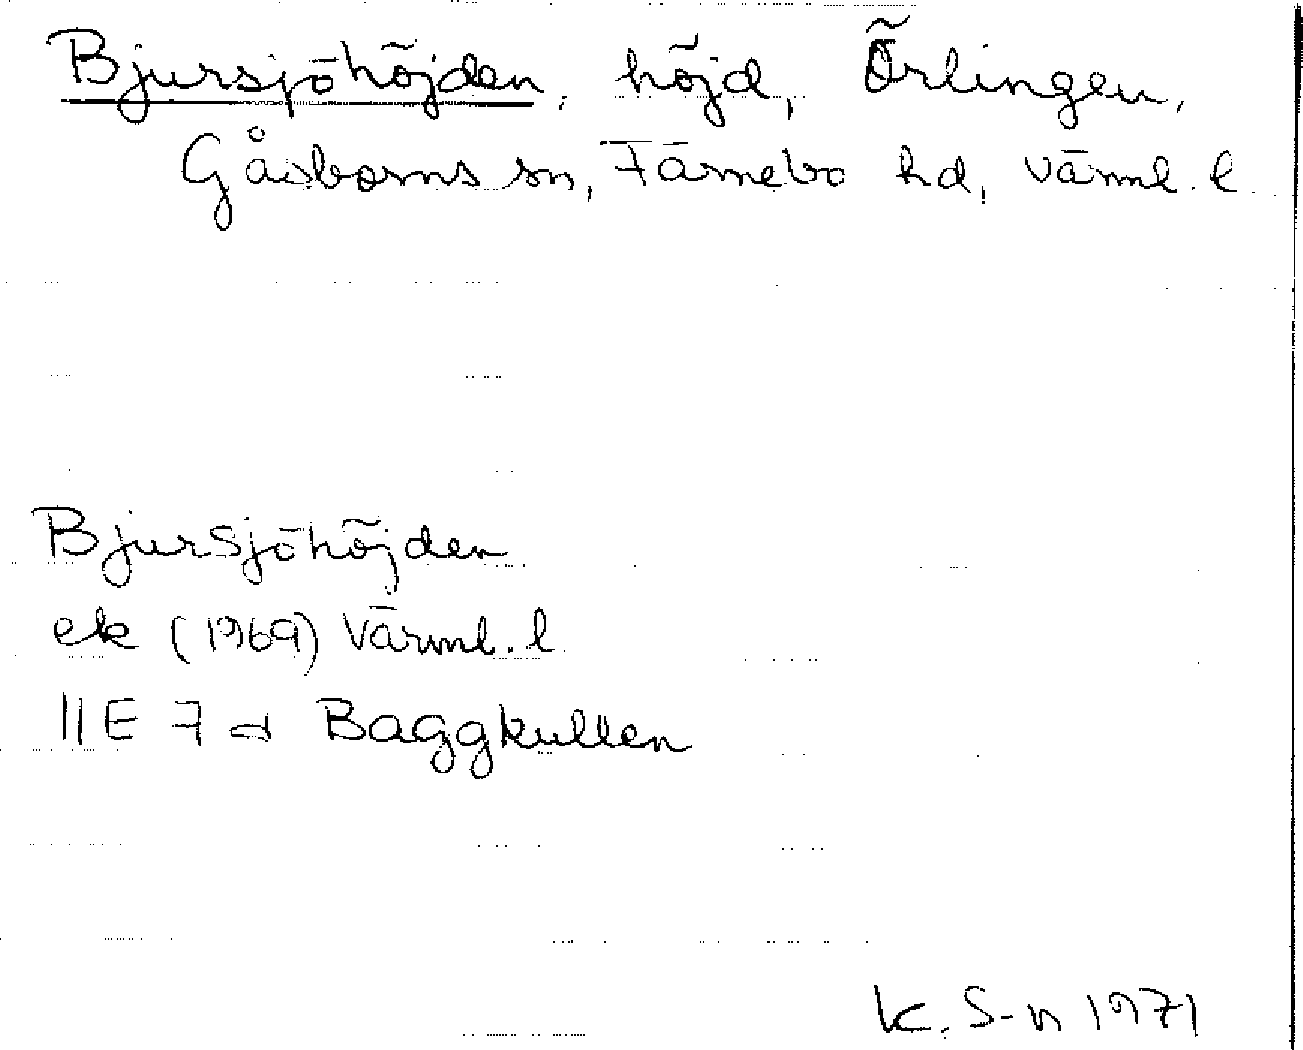 Bjursjöhöjden, höjd, Örlingen,
Gåsborns sn, Färnebo hd, Värml. l
Bjursjöhöjden
ek (1969) Värml. l
11E 7 d Baggkullen
K. S-n 1971